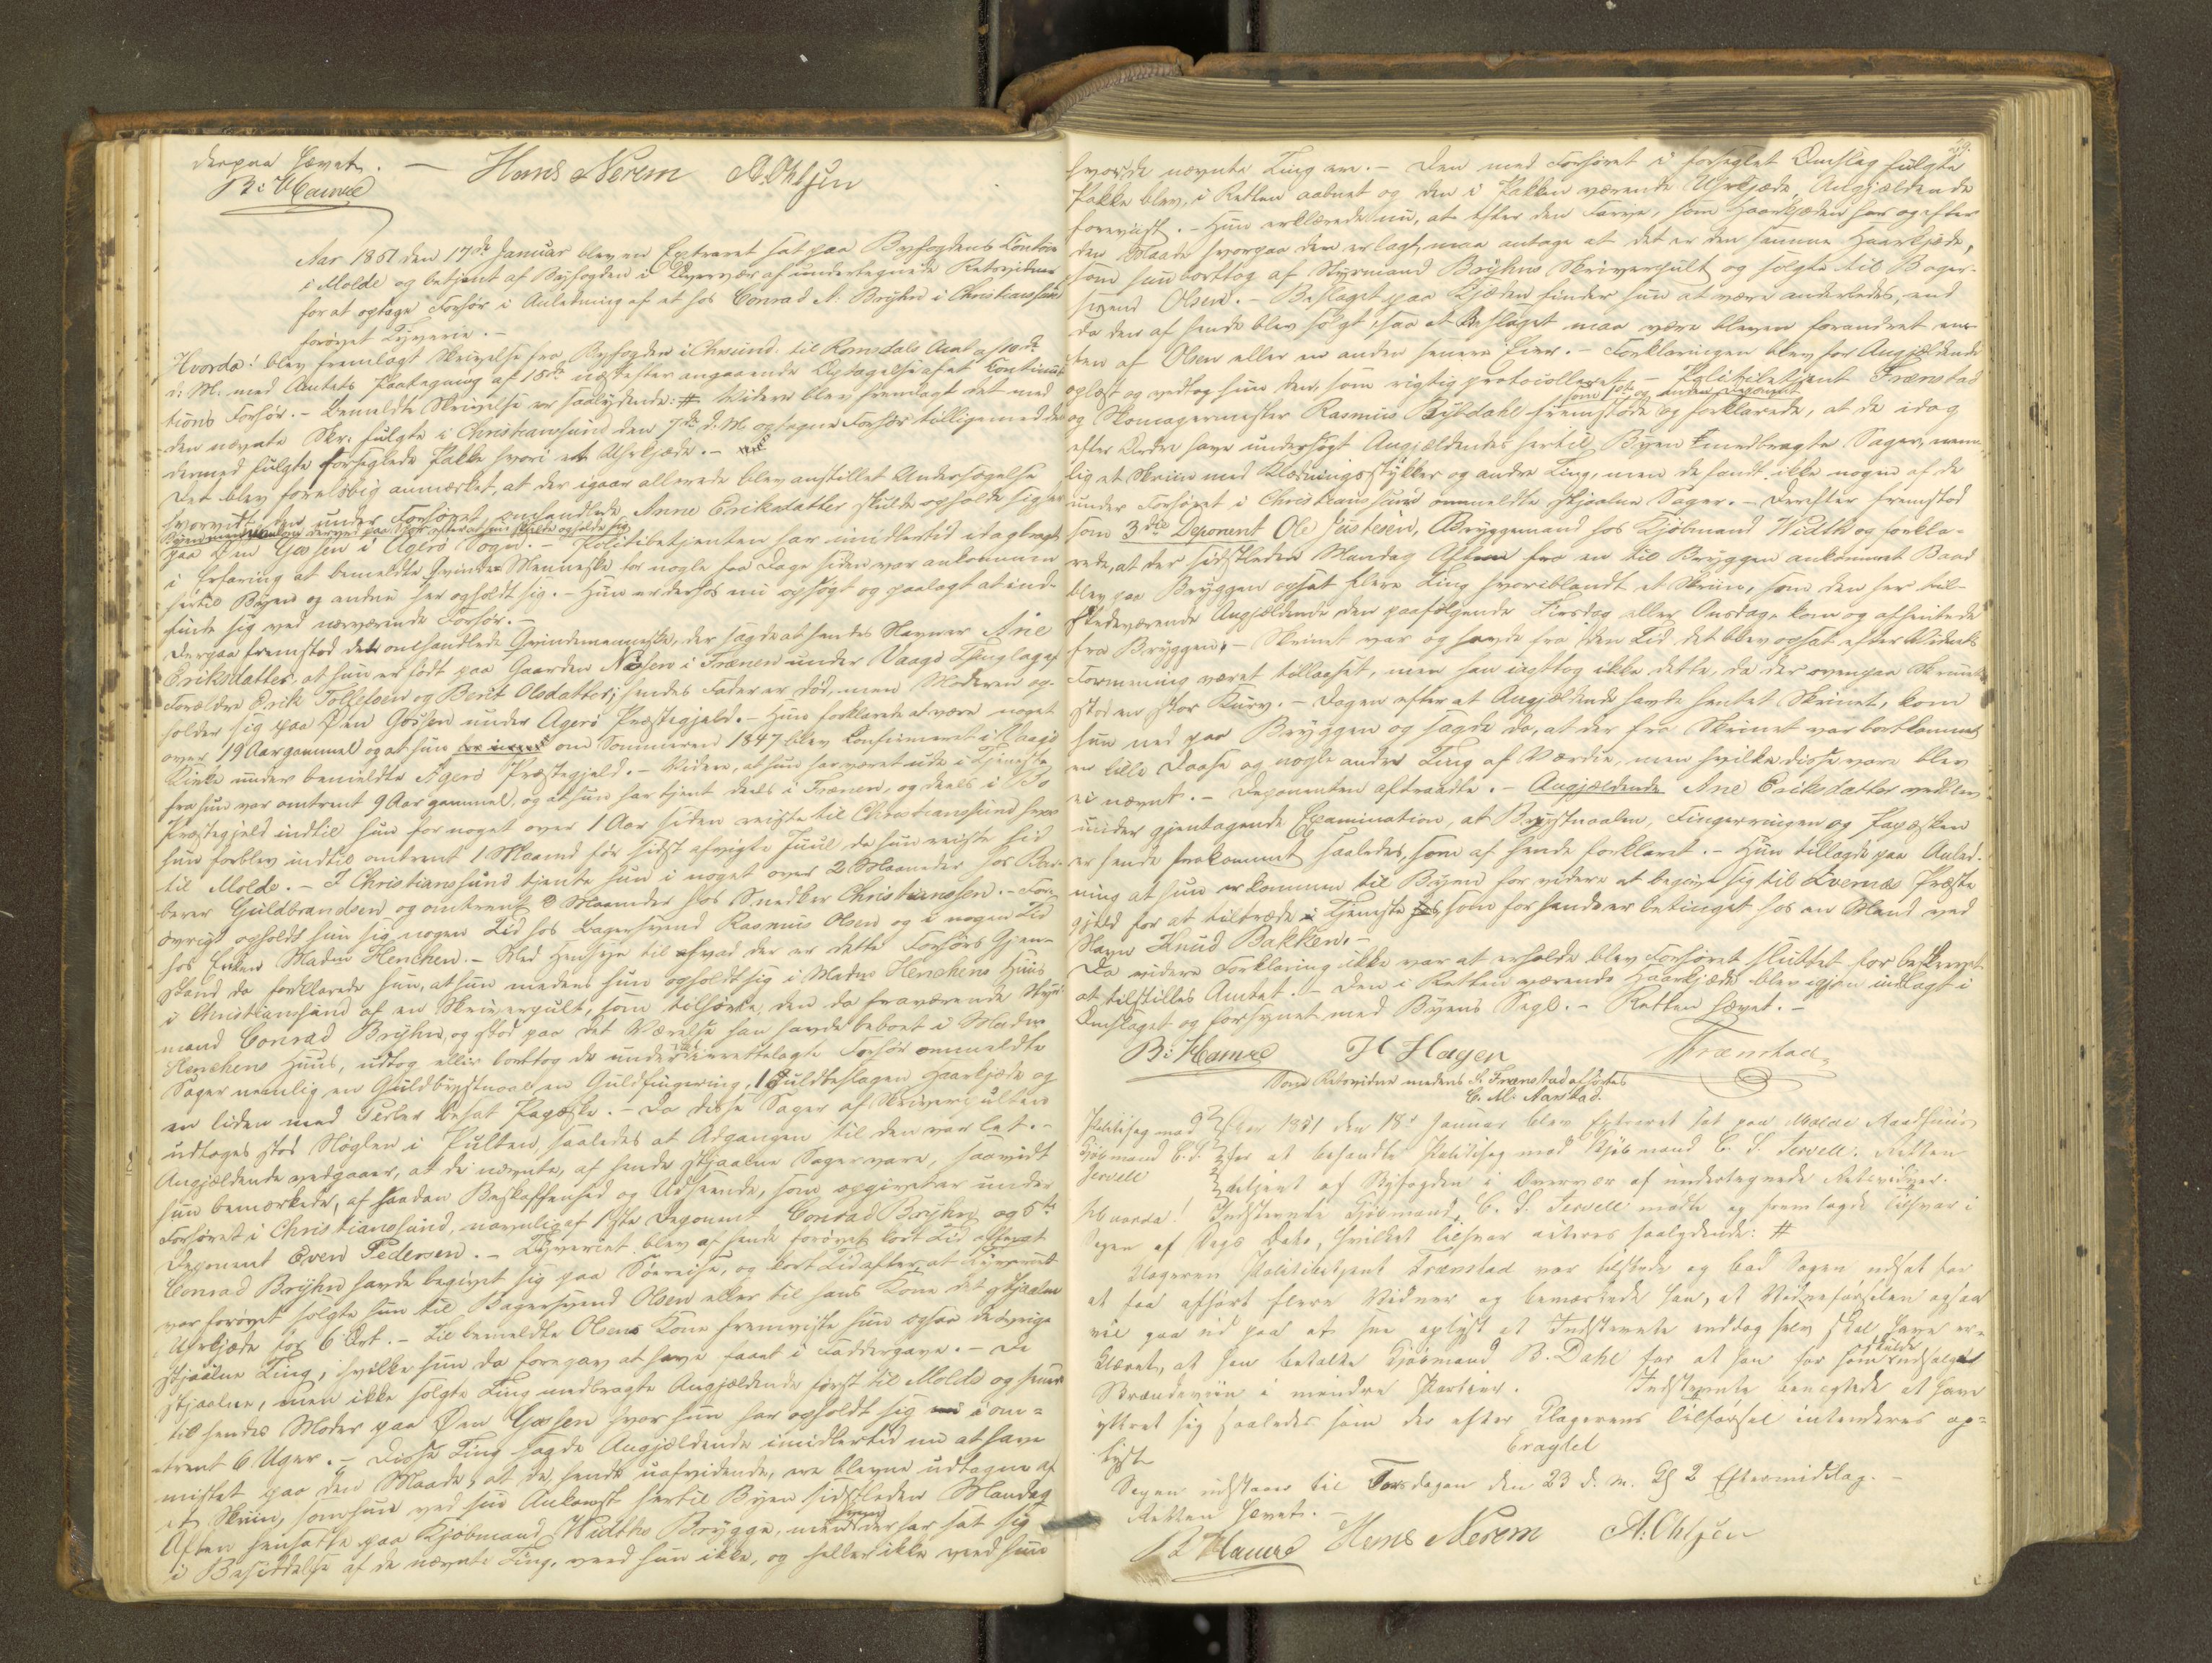 derpaa hævet. –
B: Hamre Hans Nerem A. Ohlsen
Aar 1851 den 17de Januar blev en Extraret sat paa Byfogdens Contoir
i Molde og betjent af Byfogden i Overvær af undertegnede Retsvidner
for at optage Forhør i Anledning af et hos Conrad A: Bryhn i Christianssund
forøvet Tyverie. –
Hvorda! blev fremlagt Skrivelse fra Byfogden i Chrsund. til Romsdals Amt af 10de
d: M. med Amtets Paategning af 15de næstefter angaaende Optagelse af et Continua-
tions Forhør. – Bemeldte Skrivelse er saalydende: # Videre blev fremlagt det med
den nævnte Skr. fulgte i Christianssund den 7de d. M. optagne Forhør tilligemed den
dermed fulgte forseglede Pakke hvori et Uhrkjæde. –
Det blev foreløbig anmærket, at der igaar allerede blev anstillet Undersøgelse
hvorvidt den under Forhøret omhandlede Anne Eriksdatter skulde opholde sig her
i Byen
paa Øen Gossen i Agerø Sogn. – Politibetjenten har imidlertid idag bragt
i Erfaring at bemeldte Qvinde Menneske for nogle faa Dage siden var ankommen
hertil Byen og endnu her opholdt sig. – Hun er derfor nu opsøgt og paalagt at ind-
finde sig ved nærværende Forhør. –
Derpaa fremstod det omhandlede Qvindemenneske, der sagde at hendes Navn er Ane
Eriksdatter, at hun er født paa Gaarden Næsen i Frænen under Vaagø Thinglag af
Forældre Erik Tollefsen og Berit Olsdatter; hendes Fader er død, men Moderen op-
holder sig paa Øen Gossen under Agerø Præstegjeld. – Hun forklarede at være noget
over 19 Aar gammel og at hun om Sommeren 1847 blev Confirmeret i Vaagø
Kirke under bemeldte Agerø Præstegjeld. – Videre, at hun har været ude i Tjeneste
fra hun var omtrent 9 Aar gammel, og at hun har tjent deels i Frænen, og deels i Bo
Præstegjeld indtil hun for noget over 1 Aar siden reiste til Christianssund hvor
hun forblev indtil omtrent 1 Maaned før sidst afvigte Juul, da hun reiste hid
til Molde. – I Christianssund tjente hun i noget over 2 Maaneder hos Bar-
berer Guldbrandsen og omtrent 2 Maaneder hos Snedker Christianssen. – For-
øvrigt opholdt hun sig nogen Tid hos Bagersvend Rasmus Olsen og i nogen Tid
hos Enken Madm Henchen. – Med Hensyn til hvad der er dette Forhørs Gjen-
stand da forklarede hun, at hun medens hun opholdt sig i Madm Henchens Huus
i Christianssund af en Skriverpult, som tilhørte den da fraværende Styr-
mand Conrad Bryhn, og stod paa det Værelse han havde beboet i Madm
Henchens Huus, udtog eller borttog de under irettelagte Forhør ommeldte
Sager nemlig en Guldbrystnaal en Guldfingerring, 1 guldbeslagen Haarkjæde og
en liden med Perler besat Papæske. – Da disse Sager af Skriverpulten
udtoges stod Nøglen i Pulten saaledes at Adgangen til den var let. –
Angjældende vedgaaer, at de nævnte, af hende stjaalne Sager vare, saavidt
hun bemærkede, af saadan Beskaffenhed og Udseende, som opgivet er under
Forhøret i Christianssund, navnlig af 1ste Deponent Conrad Bryhn og 5te
Deponent Even Pedersen. – Tyveriet blev af hende forøvet kort Tid efterat
Conrad Bryhn havde begivet sig paa Søereise, og kort Tid efter at Tyveriet
var forøvet solgte hun til Bagersvend Olsen eller til hans Kone det stjaalne
Uhrkjæde for 6 Ort. – Til bemeldte Olsens Kone fremviste hun ogsaa de øvrige
stjaalne Ting, hvilke hun da foregav at have faaet i Faddergave. – De
stjaalne, men ikke solgte Ting medbragte Angjældende først til Molde og senere
til hendes Moder paa Øen Gossen hvor hun har opholdt sig i om-
trent 6 Uger. – Disse Ting sagde Angjældende imidlertid nu at have
mistet paa den Maade, at de, hende uafvidende, ere blevne udtagne af
et Skrin, som hun ved sin Ankomst hertil Byen sidstleden Mandag
Aften hensatte paa Kjøbmand Widths Brygge, men hvem der har sat sig
i Besiddelse af de nævnte Ting, veed hun ikke, og heller ikke veed hun
29.
hvor de nævnte Ting ere. – Den med Forhøret i forseglet Omslag fulgte
Pakke blev, i Retten aabnet og den i Pakken værende Uhrkjæde, Angjældende
forevist. – Hun erklærede nu, at efter den Farve, som Haarkjæden har og efter
den Maade hvorpaa den er lagt, maa antage at det er den samme Haarkjæde,
som hun borttog af Styrmand Bryhns Skriverpult og solgte til Bager-
svend Olsen. – Beslaget paa Kjæden finder hun at være anderledes, end
da den af hende blev solgt; saa at Beslaget maa være bleven forandret en-
ten af Olsen eller en anden senere Eier. – Forklaringen blev for Angjældende
oplæst og vedtog hun den, som rigtig protocolleret. – Politibetjent Frænstad
som 1ste og anden Deponent
og Skomagermester Rasmus Rybdahl fremstode og forklarede, at de idag
efter Ordre have undersøgt Angjældendes hertil Byen medbragte Sager, nem-
lig et Skrin med Klædningsstykker og andre Ting, men de fandt ikke nogen af de
under Forhøret i Christianssund ommeldte stjaalne Sager. – Derefter fremstod
som 3die Deponent Ole Justesen, Bryggemand hos Kjøbmand Width og forkla-
rede, at der sidstleden Mandag Aften fra en til Bryggen ankommet Baad
blev paa Bryggen opsat flere Ting hvoriblandt et Skrin, som den her til-
stedeværende Angjældende den paafølgende Tirsdag eller Onsdag kom og afhentede
fra Bryggen. – Skrinet var og havde fra den Tid det blev opsat efter Vidnets
Formening været tillaaset, men han iagttog ikke dette, da der ovenpaa Skrinet
stod en stor Kurv. – Dagen efter at Angjældende havde hentet Skrinet, kom
hun ned paa Bryggen og sagde da, at der fra Skrinet var bortkommet
en liden Daase og nogle andre Ting af Værdie, men hvilke disse vare blev
ei nævnt. – Deponenten aftraadte. – Angjældende Ane Eriksdatter vedblev
under gjentagende Examination, at Brystnaalen, Fingerringen og Papæsken
er hende frakommet saaledes, som af hende forklaret. – Hun tillagde paa Anled-
ning at hun er kommen til Byen for videre at begive sig til Qvernæs Præste
gjeld for at tiltræde i Tjeneste som for hende er betinget hos en Mand ved
Navn Knud Bakken. –
Da videre Forklaring ikke var at erholde blev Forhøret sluttet for beskrevet
at tilstilles Amtet. – Den i Retten værende Haarkjæde blev igjen indlagt i
Omslaget og forsynet med Byens Segl. – Retten hævet. –
B: Hamre H Hagen Frænstad
Som Retsvidne medens S. Frænstad afhørtes
C. M. Aarstad.
Politisag mod
Kjøbmand C. S.
Jervell
Aar 1851 den 18de Januar blev Extraret sat paa Molde Raadhuus
for at behandle Politisag mod Kjøbmand C. S. Jervell. Retten
betjent af Byfogden i Overvær af undertegnede Retsvidner.
Hvorda! Indstevnte Kjøbmand C. S. Jervell mødte og fremlagde Tilsvar i
Sagen af Dags Dato, hvilket Tilsvar acteres saalydende: #
Klageren Politibetjent Frænstad var tilstede og bad Sagen udsat for
at faa afhørt flere Vidner og bemærkede han, at Vidneførselen ogsaa
vil gaa ud paa at faa oplyst at Indstevnte endog selv skal have er-
klæret, at han betalte Kjøbmand B. Dahl for at han for ham skulde udsælge
Brændeviin i mindre Partier. Indstevnte benegtede at have
yttret sig saaledes som der efter Klagerens Tilførsel intenderes op-
lyst.
Eragtet
Sagen udstaar til Torsdagen den 23 d. M. Kl 2 Eftermiddag. –
Retten hævet. –
B Hamre Hans Nerem A: Ohlsen